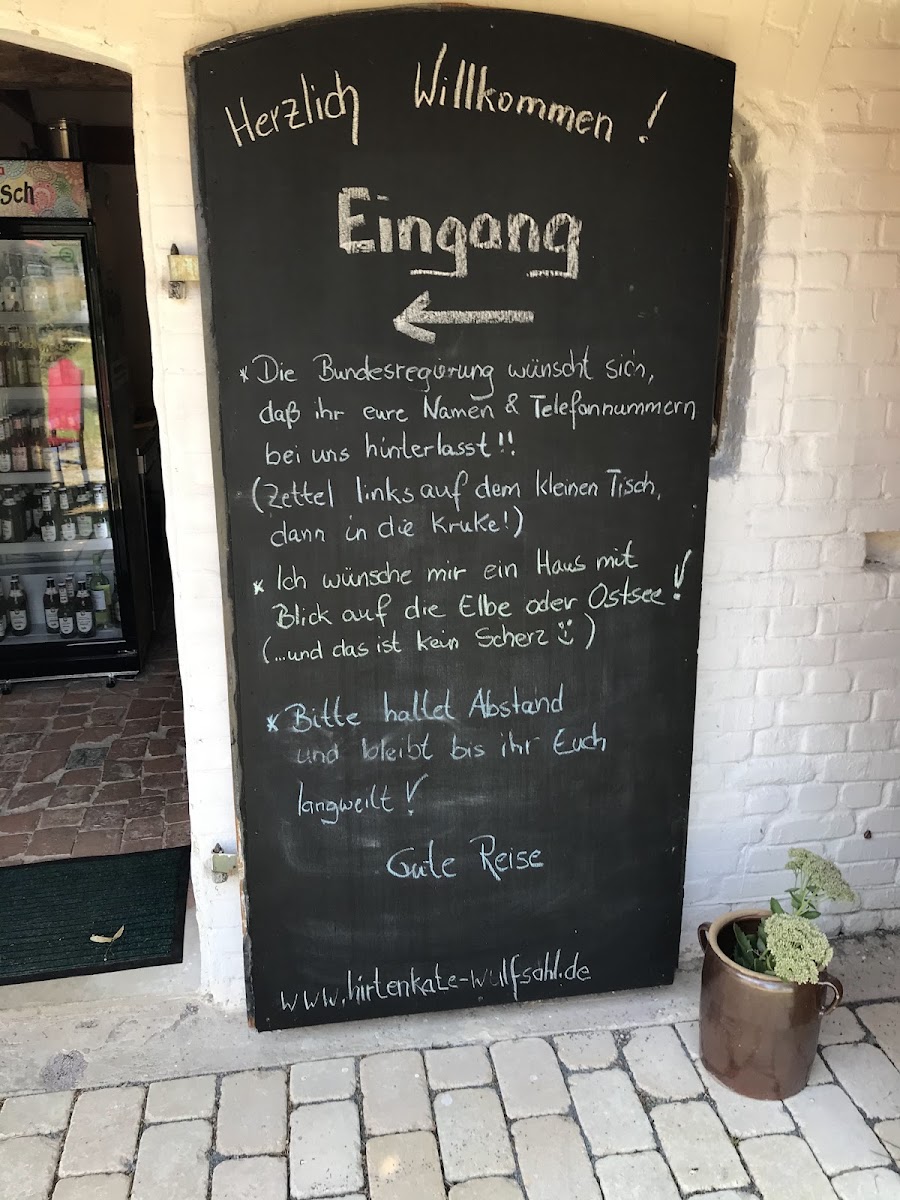 Herzlich Willkommen!
Eingang
sch
* Die Bundesregierung wünscht sich,
daß ihr eure Namen & Telefonnummern
bei uns hinterlasst!!
(Zettel links auf dem kleinen Tisch,
dann in die Kruke!)
* Ich wünsche mir ein Haus mit
Blick auf die Elbe oder Ostsee!
(...und das ist kein Scherz☺)
* Bitte haltet Abstand
und bleibt bis ihr Euch
langweilt!
Gute Reise
www.hirtenkate-wulfsahl.de